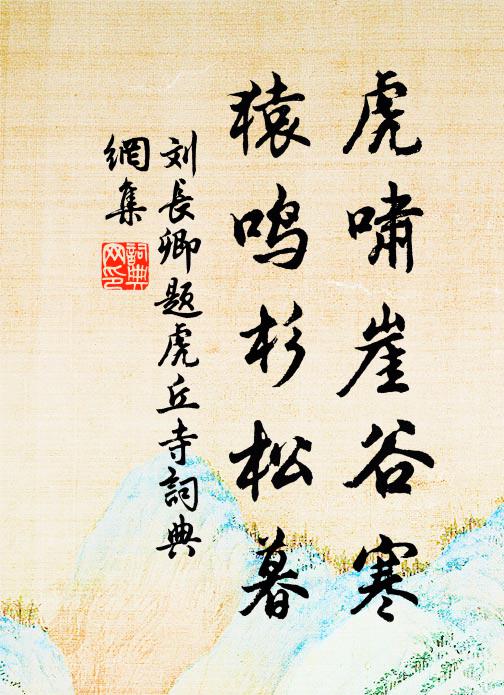 虎啸崖谷寒
猿鸣杉松暮
刘长卿题虎丘寺詞典
網集
詞典
网印